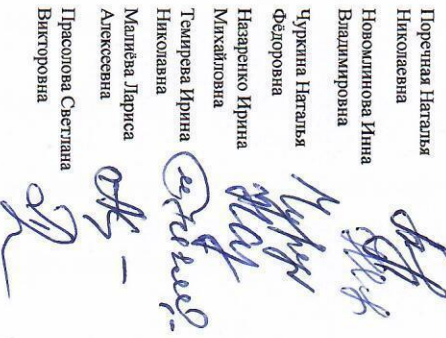 Поречная Наталья
Николаевна
Новомлинова Инна
Владимировна
Чуркина Наталья
Фёдоровна
Назаренко Ирина
Михайловна
Темирева Ирина
Николавна
Малиёва Лариса
Алексеевна
Прасолова Светлана
Викторовна